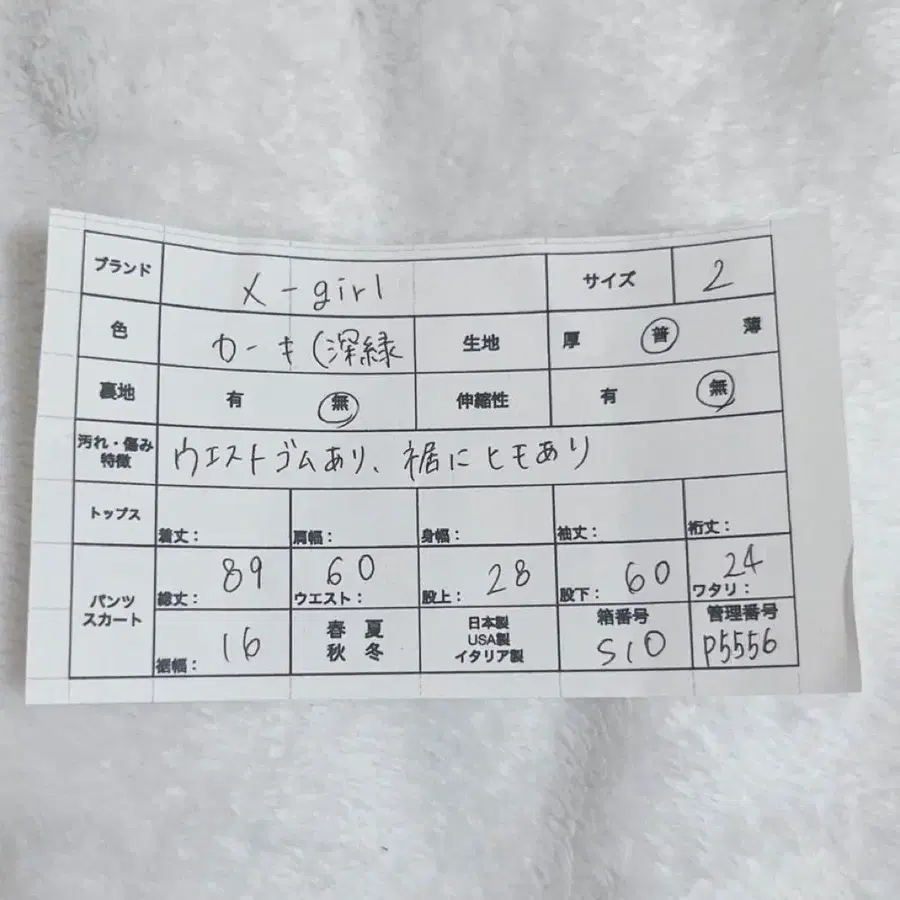 ブランド X-girl サイズ 2
色 カーキ(深緑 生地 厚 普 薄
裏地 有 無 伸縮性 有 無
汚れ・傷み
特徴 ウエストゴムあり、裾にヒモあり
トップス 着丈: 肩幅: 身幅: 袖丈: 裄丈:
パンツ
スカート
総丈: 89 ウエスト: 60 股上: 28 股下: 60 ワタリ: 24
裾幅: 16
春 夏
秋 冬
日本製
USA製
イタリア製
箱番号
S10
管理番号
P5556